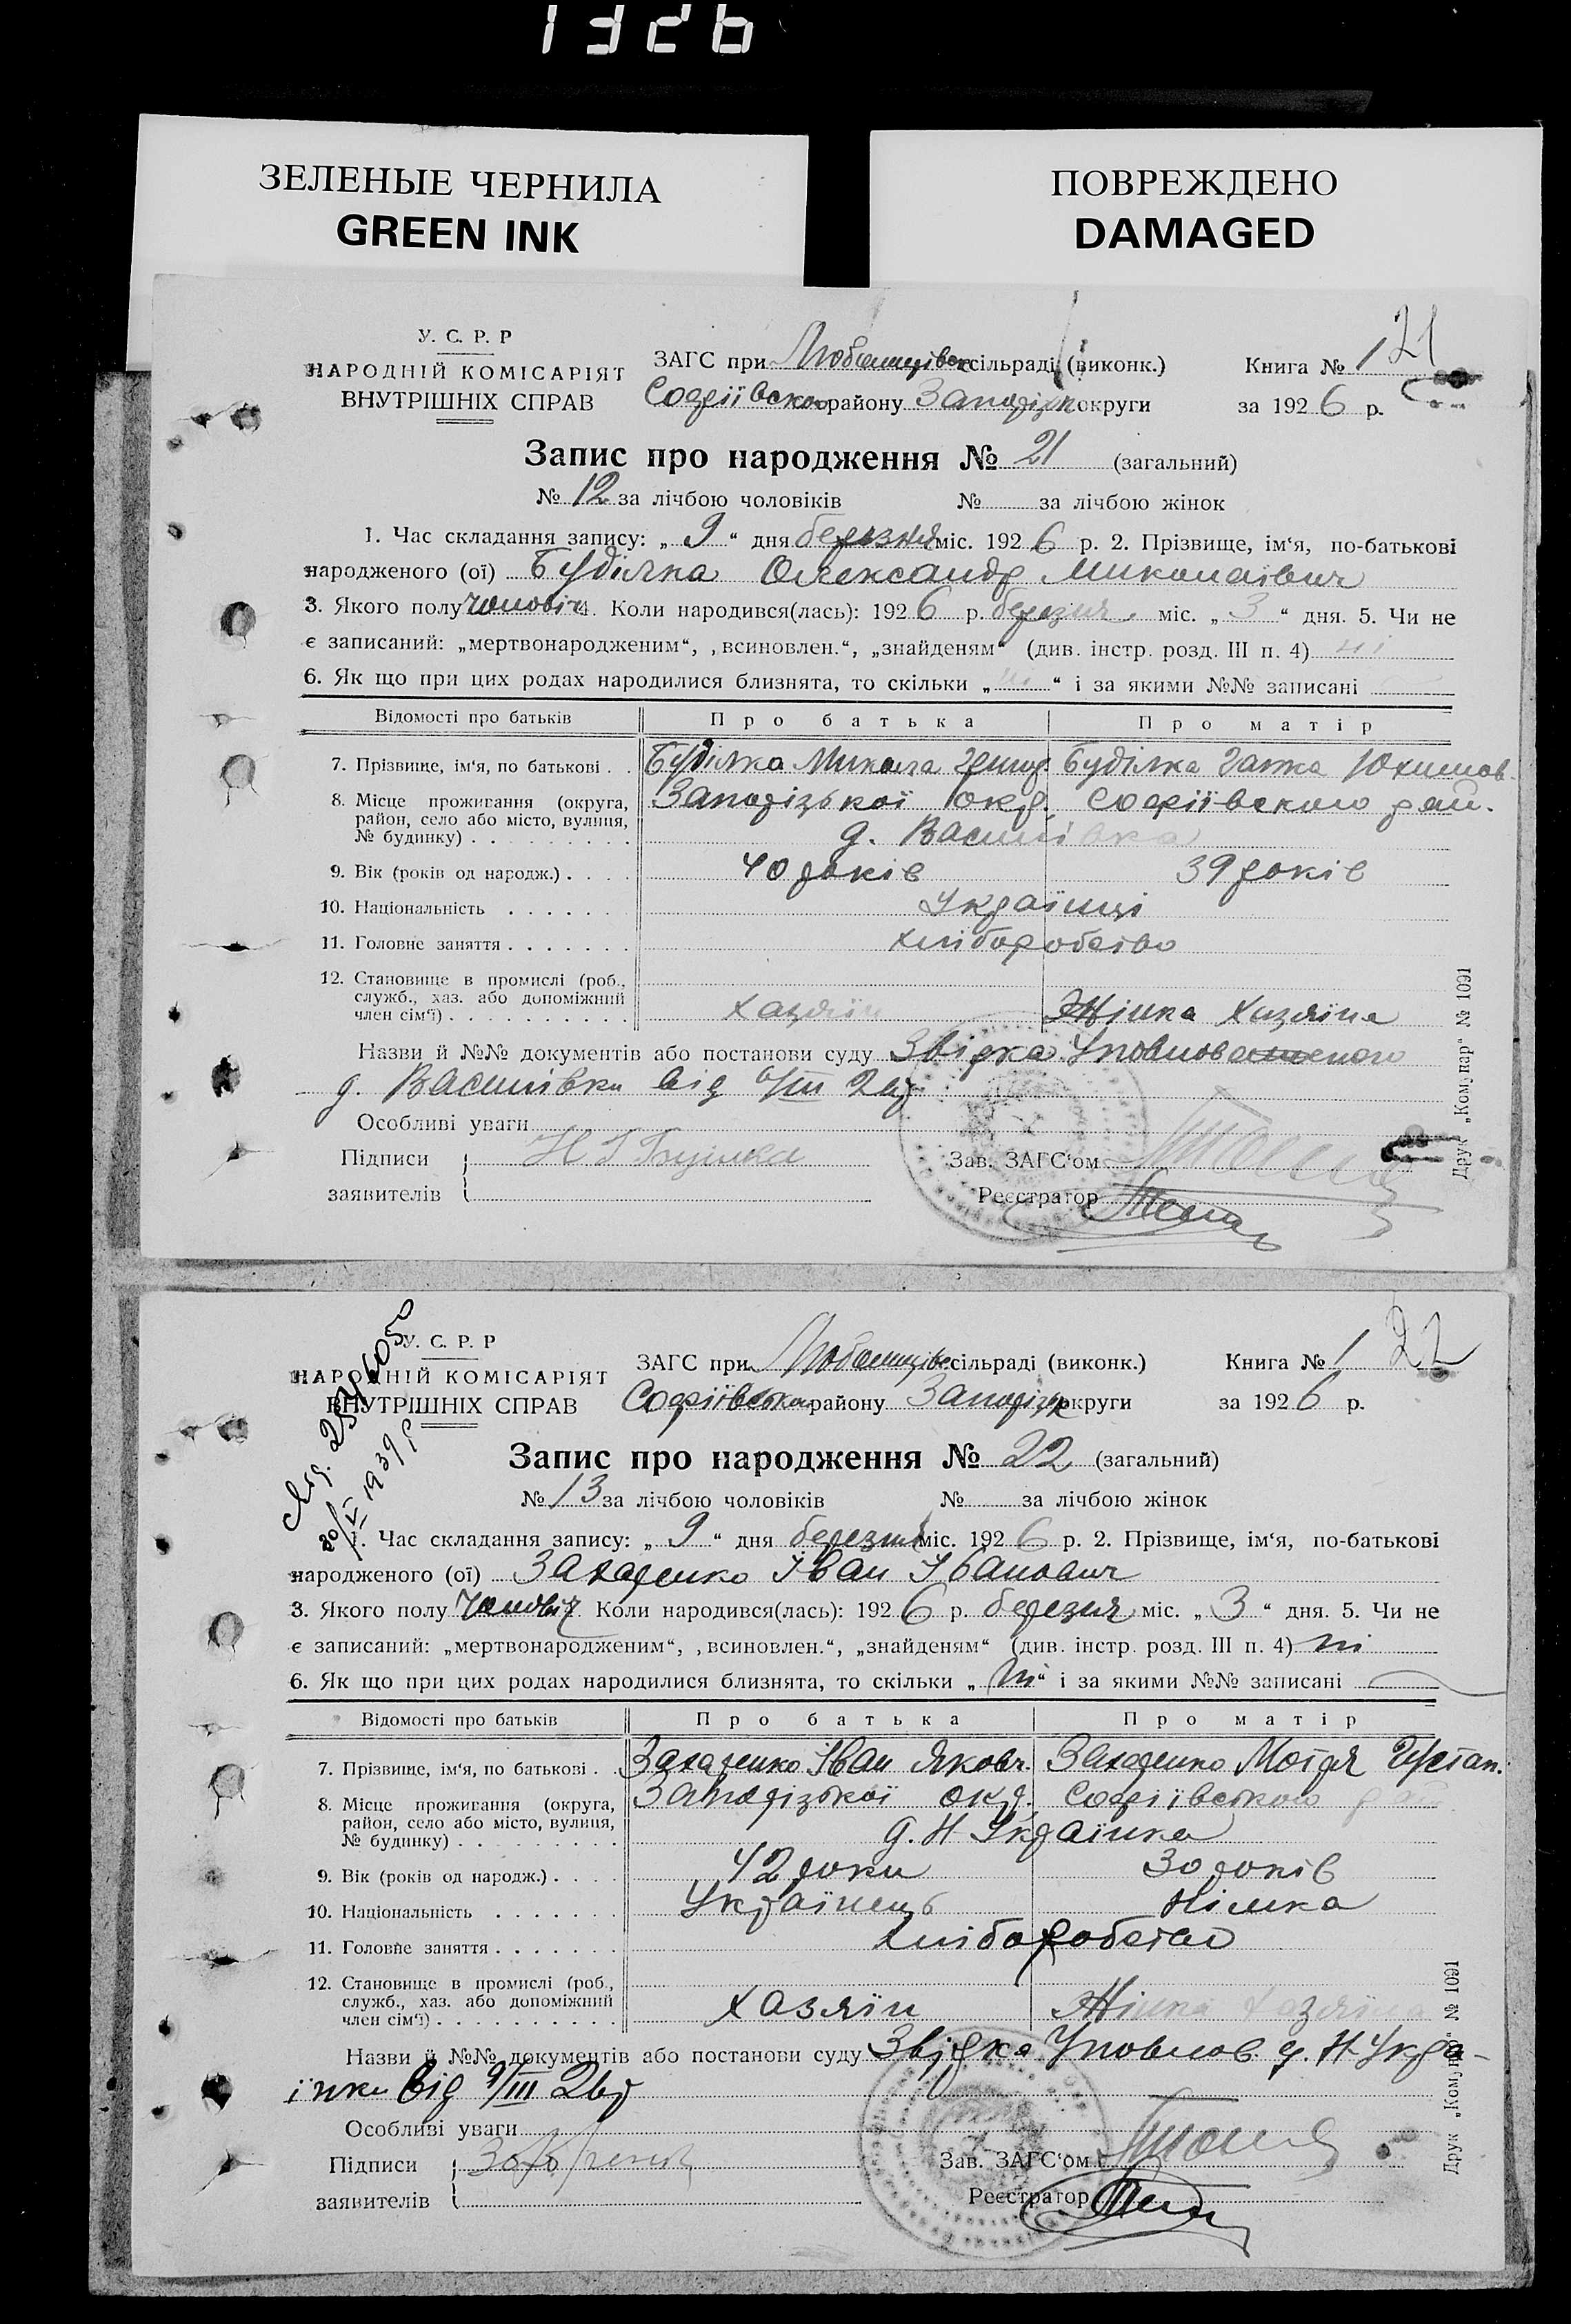 1326
ЗЕЛЕНЫЕ ЧЕРНИЛА
GREEN INK
ПОВРЕЖДЕНО
DAMAGED
У. С. Р. Р
НАРОДНІЙ КОМІСАРІЯТ
ВНУТРІШНІХ СПРАВ
ЗАГС при сільраді (виконк.)
Софіївсько району Запоріз округи
Книга № 1 21
за 1926 р.
Запис про народження № 21 (загальний)
№ 12 за лічбою чоловіків № за лічбою жінок
1. Час складання запису: „ 9 “ дня березня міс. 1926 р. 2. Прізвище, ім‘я, по-батькові
народженого (ої) Буділка Олександр Миколаївич
3. Якого полу чоловіч 4. Коли народився(лась): 1926 р. березня міс. „ 3 “ дня. 5. Чи не
є записаний: „мертвонародженим“, „всиновлен.“, „знайденям“ (див. інстр. розд. III п. 4) ні
6. Як що при цих родах народилися близнята, то скільки „ ні “ і за якими №№ записані
Відомості про батьків Про батька Про матір
7. Прізвище, ім‘я, по батькові . . Буділка Микола Буділка Юхимов.
8. Місце проживання (округа, район, село або місто, вулиця, № будинку) . Запорізької окр. Софіївського рай.
д. Василівка
9. Вік (років од народж.) . . . . 40 років 39 років
10. Національність . . . . . . Українці
11. Головне заняття . . . . . . . хліборобство
12. Становище в промислі (роб., служб., хаз. або допоміжний член сім‘ї) . Хазяїн Жінка Хазяїна
Назви й №№ документів або постанови суду Звідка Уповноваженого
д. Василівки від 6/III 26р
Особливі уваги
Підписи
заявителів
Зав. ЗАГС‘ом
Реєстратор
Друк „Комунар“ № 1091
У. С. Р. Р
НАРОДНІЙ КОМІСАРІЯТ
ВНУТРІШНІХ СПРАВ
20/V 1939 р
ЗАГС при сільраді (виконк.)
Софіївсько району Запоріз округи
Книга № 1 22
за 1926 р.
Запис про народження № 22 (загальний)
№ 13 за лічбою чоловіків № за лічбою жінок
1. Час складання запису: „ 9 “ дня березня міс. 1926 р. 2. Прізвище, ім‘я, по-батькові
народженого (ої) Захаренко Іван Іванович
3. Якого полу чоловіч Коли народився(лась): 1926 р. березня міс. „ 3 “ дня. 5. Чи не
є записаний: „мертвонародженим“, „всиновлен.“, „знайденям“ (див. інстр. розд. III п. 4) ні
6. Як що при цих родах народилися близнята, то скільки „ ні “ і за якими №№ записані
Відомості про батьків Про батька Про матір
7. Прізвище, ім‘я, по батькові . . Захаренко Іван Яковл. Захаренко Мотря
8. Місце проживання (округа, район, село або місто, вулиця, № будинку) . Запорізької окр. Софіївського рай
д. Н Українка
9. Вік (років од народж.) . . . . 42 роки 30 років
10. Національність . . . . . . Українець Німка
11. Головне заняття . . . . . . . хліборобство
12. Становище в промислі (роб., служб., хаз. або допоміжний член сім‘ї) . Хазяїн Жінка Хазяїна
Назви й №№ документів або постанови суду Звідка Уповнов д. Н-Укра-
їнки від 9/III 26р
Особливі уваги
Підписи
заявителів
Зав. ЗАГС‘ом
Реєстратор
Друк „Комунар“ № 1091